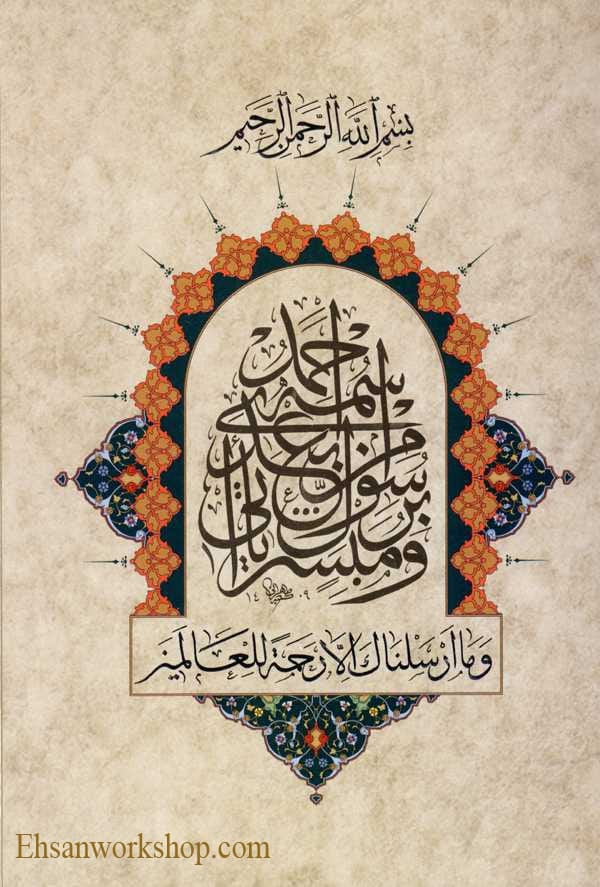 بسم الله الرحمن الرحيم
ومبشرا برسول يأتي من بعدي اسمه أحمد
١٤٠٩
وما أرسلناك إلا رحمة للعالمين
Ehsanworkshop.com